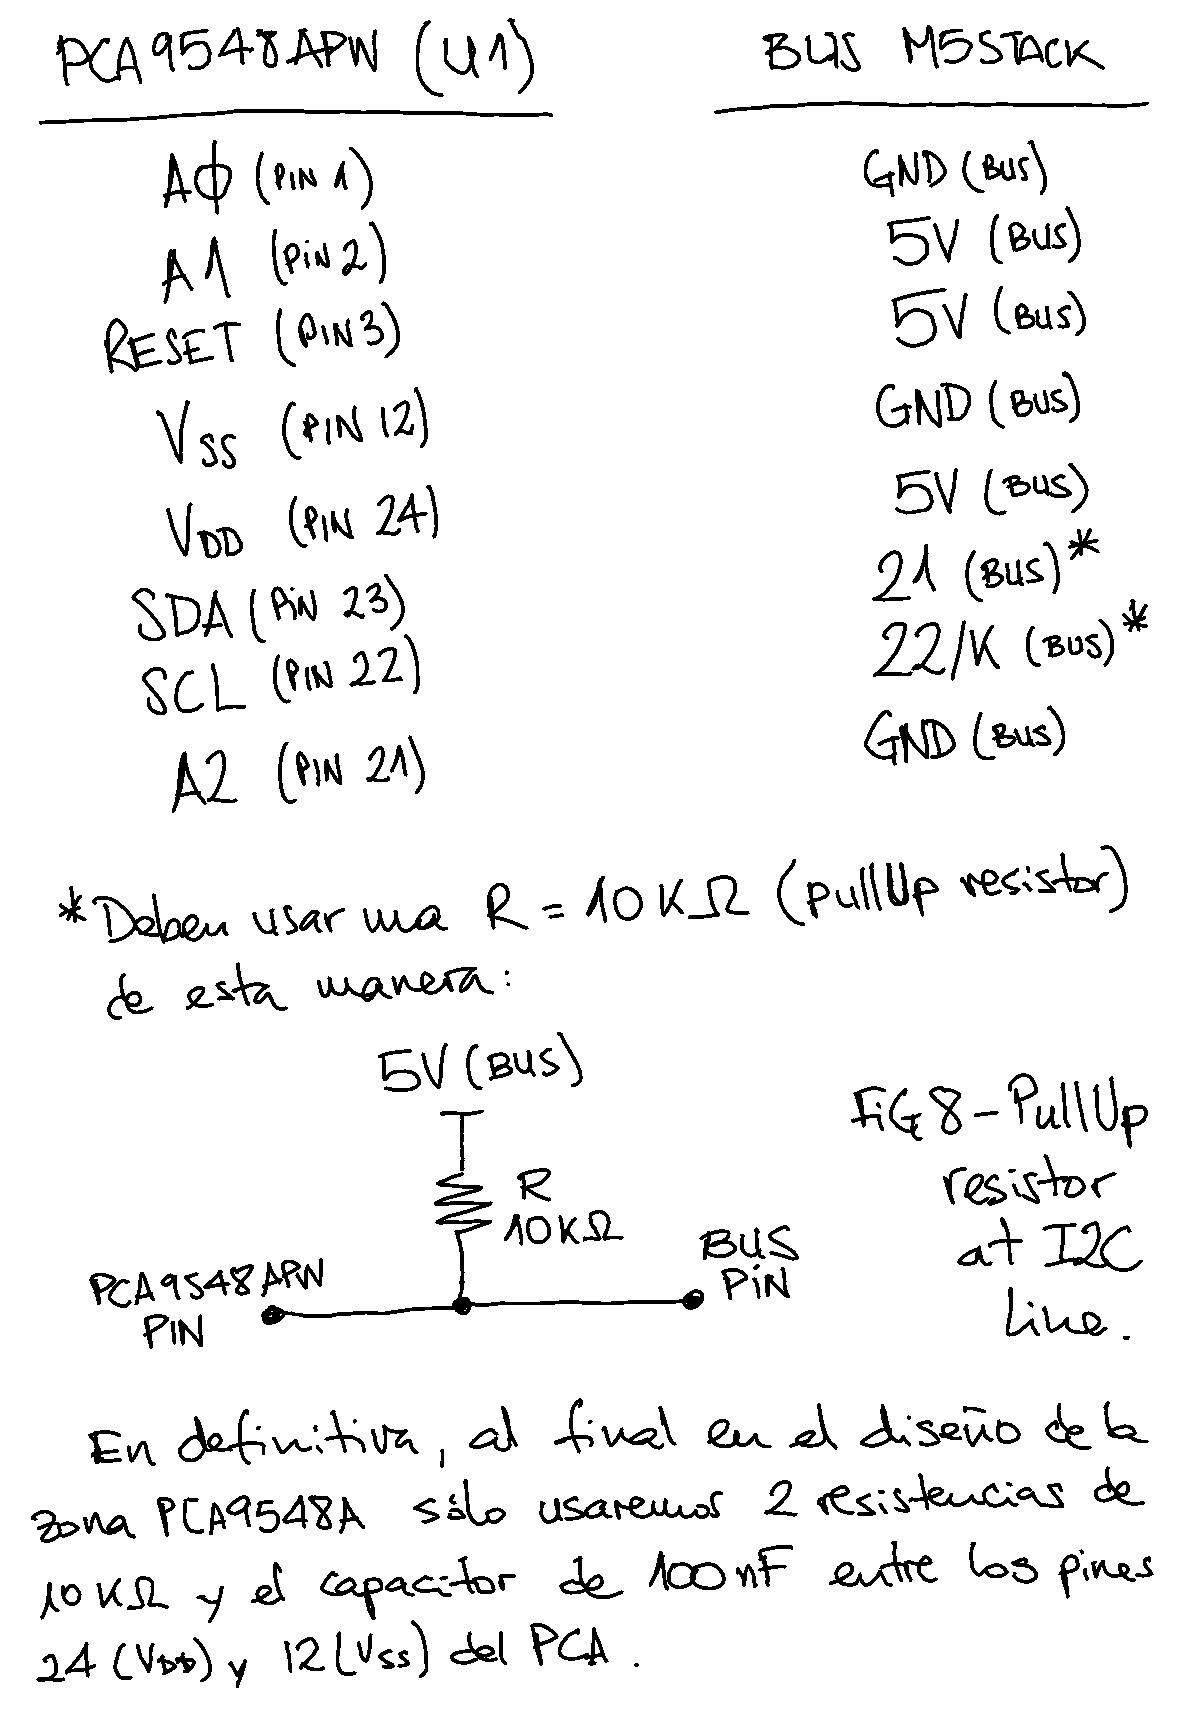 PCA9548APW (U1) BUS M5STACK
AØ (PIN 1) GND (BUS)
A1 (PiN 2) 5V (BUS)
RESET (PIN 3) 5V (BUS)
Vss (PIN 12) GND (BUS)
VDD (PIN 24) 5V (BUS)
SDA (PiN 23) 21 (BUS)*
SCL (PIN 22) 22/K (BUS)*
A2 (PIN 21) GND (BUS)
*Deben usar una R = 10KΩ (pullUp resistor)
de esta manera:
5V (BUS)
R
10KΩ
PCA9548APW
PIN
BUS
PiN
FiG 8 - PullUp
resistor
at I2C
Line.
En definitiva, al final en el diseño de la
zona PCA9548A sólo usaremos 2 resistencias de
10KΩ y el capacitor de 100nF entre los pines
24 (VDD) y 12 (Vss) del PCA.